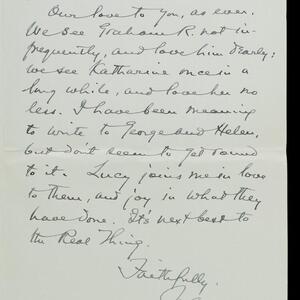 Our love to you, as ever.
We see Graham R. not in-
frequently, and love him dearly;
we see Katharine once in a
long while, and love her no
less. I have been meaning
to write to George and Helen,
but don't seem to get round
to it. Lucy joins me in love
to them, and joy in what they
have done. It's next best to
the Real Thing.
Faithfully,